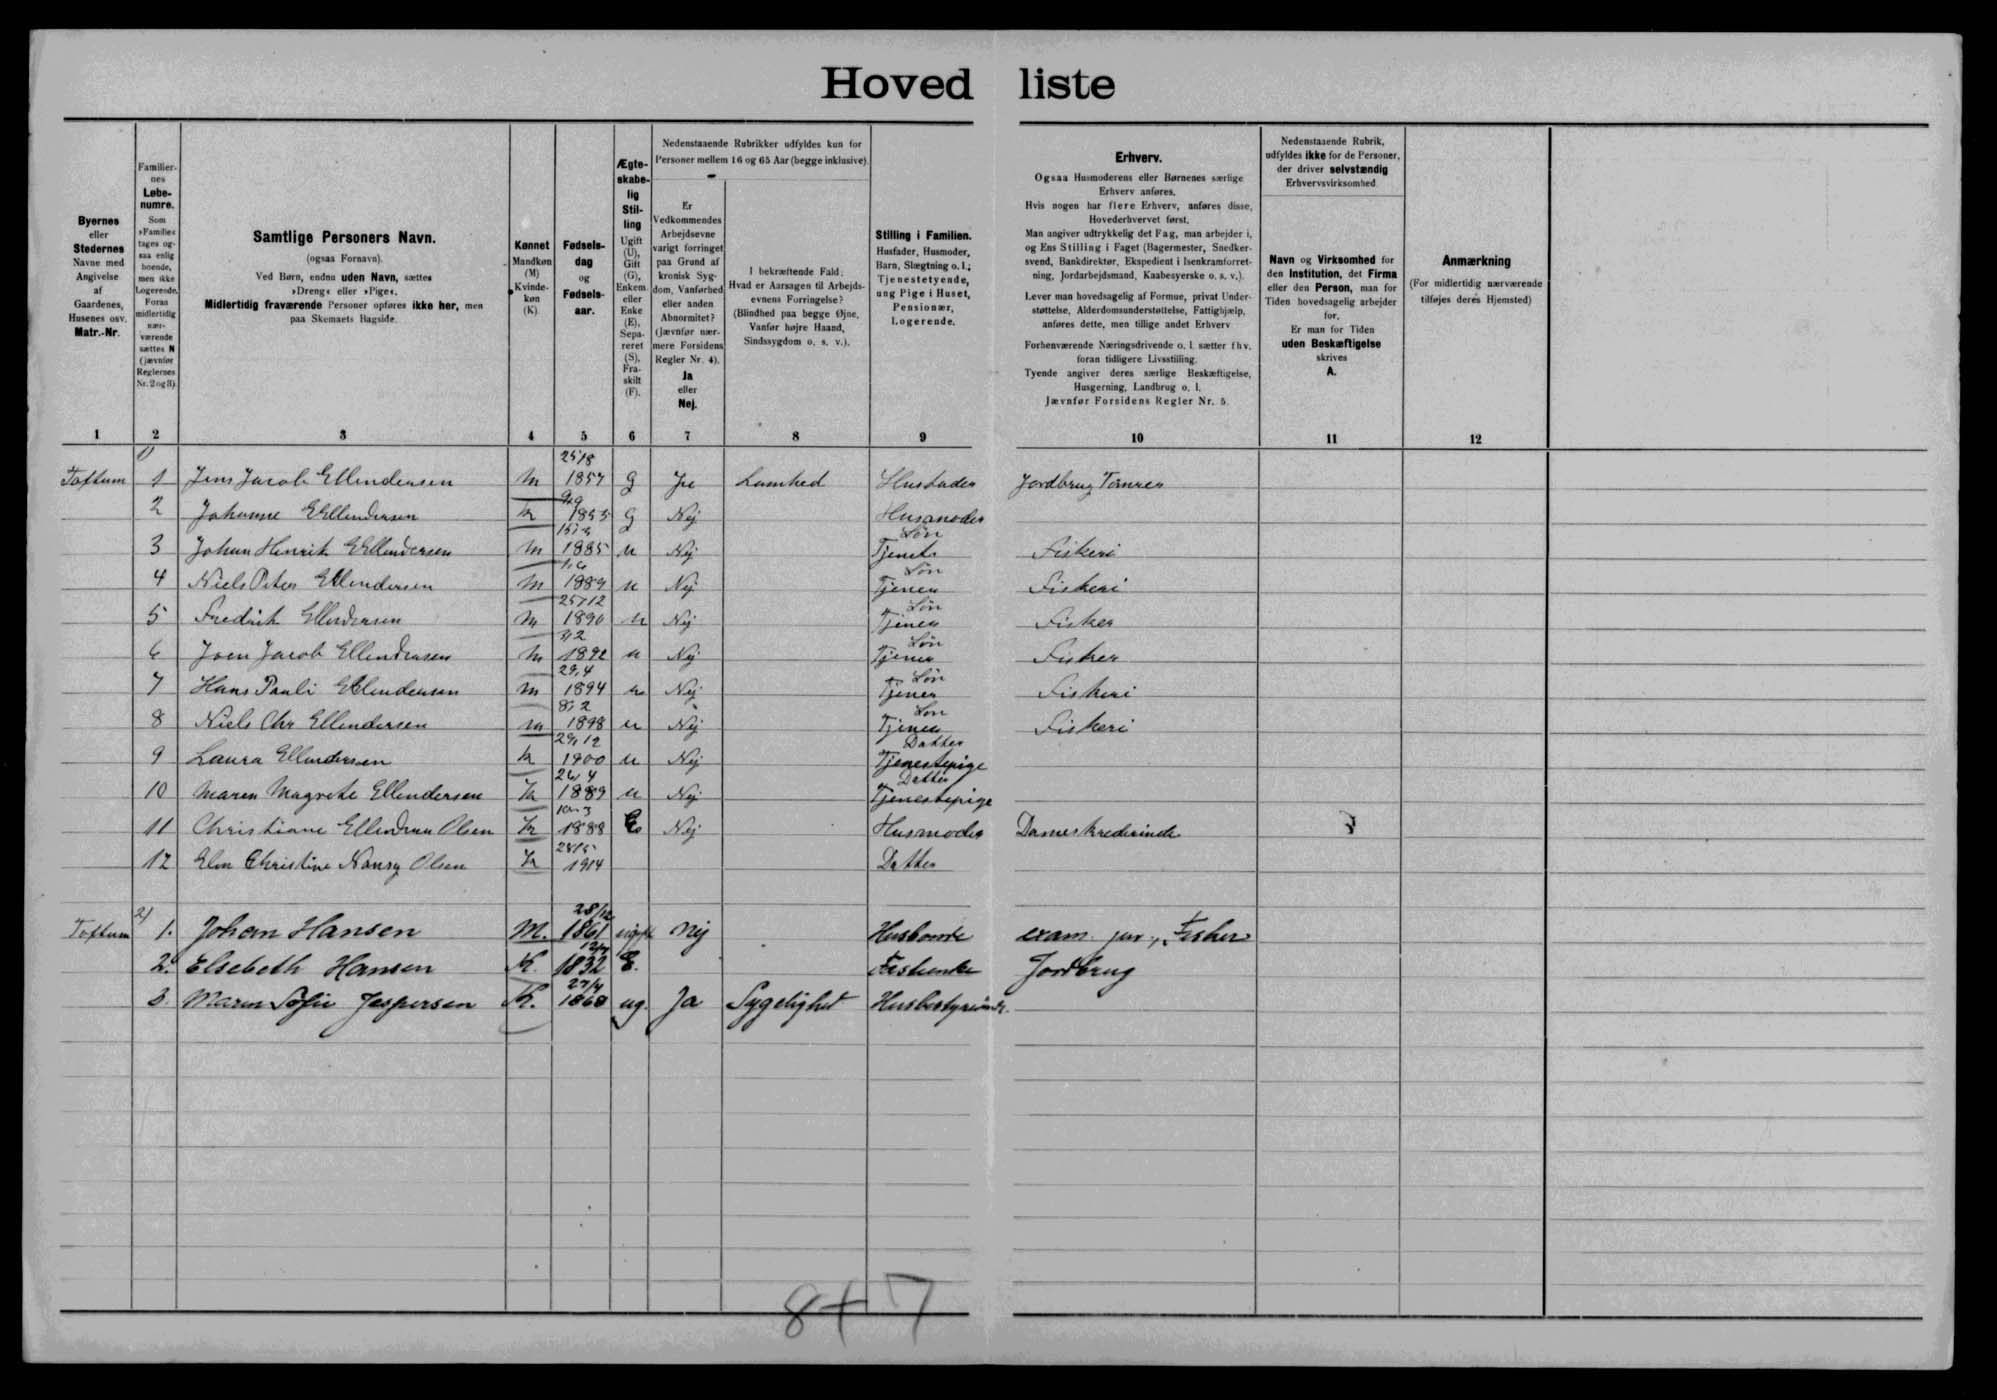 Hovedliste
Byernes
eller
Stedernes
Navne med
Angivelse
af
Gaardenes,
Husenes osv.
Matr.-Nr.
Familier-
nes
Løbe-
numre.
Som
»Familie«
tages og-
saa enlig
boende,
men ikke
Logerende.
Foran
midlertidig
nær-
værende
sættes N
(jævnfør
Reglernes
Nr. 2 og 3).
Samtlige Personers Navn.
(ogsaa Fornavn).
Ved Børn, endnu uden Navn, sættes
»Dreng« eller »Pige«.
Midlertidig fraværende Personer opføres ikke her, men
paa Skemaets Bagside.
Kønnet
Mandkøn
(M)
Kvinde-
køn
(K)
Fødsels-
dag
og
Fødsels-
aar.
Ægte-
skabe-
lig
Stil-
ling
Ugift
(U),
Gift
(G),
Enkem.
eller
Enke
(E),
Sepa-
reret
(S),
Fra-
skilt
(F).
Nedenstaaende Rubrikker udfyldes kun for
Personer mellem 16 og 65 Aar (begge inklusive).
Er
Vedkommendes
Arbejdsevne
varigt forringet
paa Grund af
kronisk Syg-
dom, Vanførhed
eller anden
Abnormitet?
(Jævnfør nær-
mere Forsidens
Regler Nr. 4).
Ja
eller
Nej.
I bekræftende Fald:
Hvad er Aarsagen til Arbejds-
evnens Forringelse?
(Blindhed paa begge Øjne,
Vanfør højre Haand,
Sindssygdom o. s. v.).
Stilling i Familien.
Husfader, Husmoder,
Barn, Slægtning o. l.;
Tjenestetyende,
ung Pige i Huset,
Pensionær,
Logerende.
Erhverv.
Ogsaa Husmoderens eller Børnenes særlige
Erhverv anføres.
Hvis nogen har flere Erhverv, anføres disse,
Hovederhvervet først.
Man angiver udtrykkelig det Fag, man arbejder i,
og Ens Stilling i Faget (Bagermester, Snedker-
svend, Bankdirektør, Ekspedient i Isenkramforret-
ning, Jordarbejdsmand, Kaabesyerske o. s. v.).
Lever man hovedsagelig af Formue, privat Under-
støttelse, Alderdomsunderstøttelse, Fattighjælp,
anføres dette, men tillige andet Erhverv
Forhenværende Næringsdrivende o. l. sætter fhv.
foran tidligere Livsstilling.
Tyende angiver deres særlige Beskæftigelse,
Husgerning, Landbrug o. l.
Jævnfør Forsidens Regler Nr. 5.
Nedenstaaende Rubrik,
udfyldes ikke for de Personer,
der driver selvstændig
Erhvervsvirksomhed
Navn og Virksomhed for
den Institution, det Firma
eller den Person, man for
Tiden hovedsagelig arbejder
for.
Er man for Tiden
uden Beskæftigelse
skrives
A.
Anmærkning
(For midlertidig nærværende
tilføjes deres Hjemsted)
1 2 3 4 5 6 7 8 9 10 11 12
25/8
Toftum 1 Jens Jacob Ellendersen M 1857 G Ja Lamhed Husfader Jordbrug Tømrer
2 Johanne Ellendersen K 1853 G Nej Husmoder
Søn
3 Johan Henrik Ellendersen M 1885 u Nej Fiskeri
Søn
4 Niels Peter Ellendersen M 1889 u Nej Tjener Fiskeri
25/12 Søn
5 Fredrik Ellendersen M 1890 u Nej Tjener Fisker
Søn
6 Joen Jacob Ellendersen M 1892 u Nej Tjener Fisker
29/4 Søn
7 Hans Pauli Ellendersen M 1894 u Nej Tjener Fiskeri
8/2 Søn
8 Niels Chr Ellendersen M 1898 u Nej Tjener Fiskeri
29/12 Datter
9 Laura Ellendersen K 1900 u Nej Tjenestepige
26/4 Datter
10 Maren Magrete Ellendersen K 1889 u Nej Tjenestepige
10/3
11 Christiane Ellendersen Olsen K 1888 Nej Husmoder Dameskrederinde
12 Christine Nansy Olsen K 1914 Datter
2) 28/12
Toftum 1. Johan Hansen M. 1861 ugift Nej Husbonde exam. jur., Fisker
2. Elsebeth Hansen K. 1832 E. Jordbrug
27/4
3. Maren Sofie Jespersen K. 1868 ug. Ja Sygelighed Husbestyrerinde.
8+7